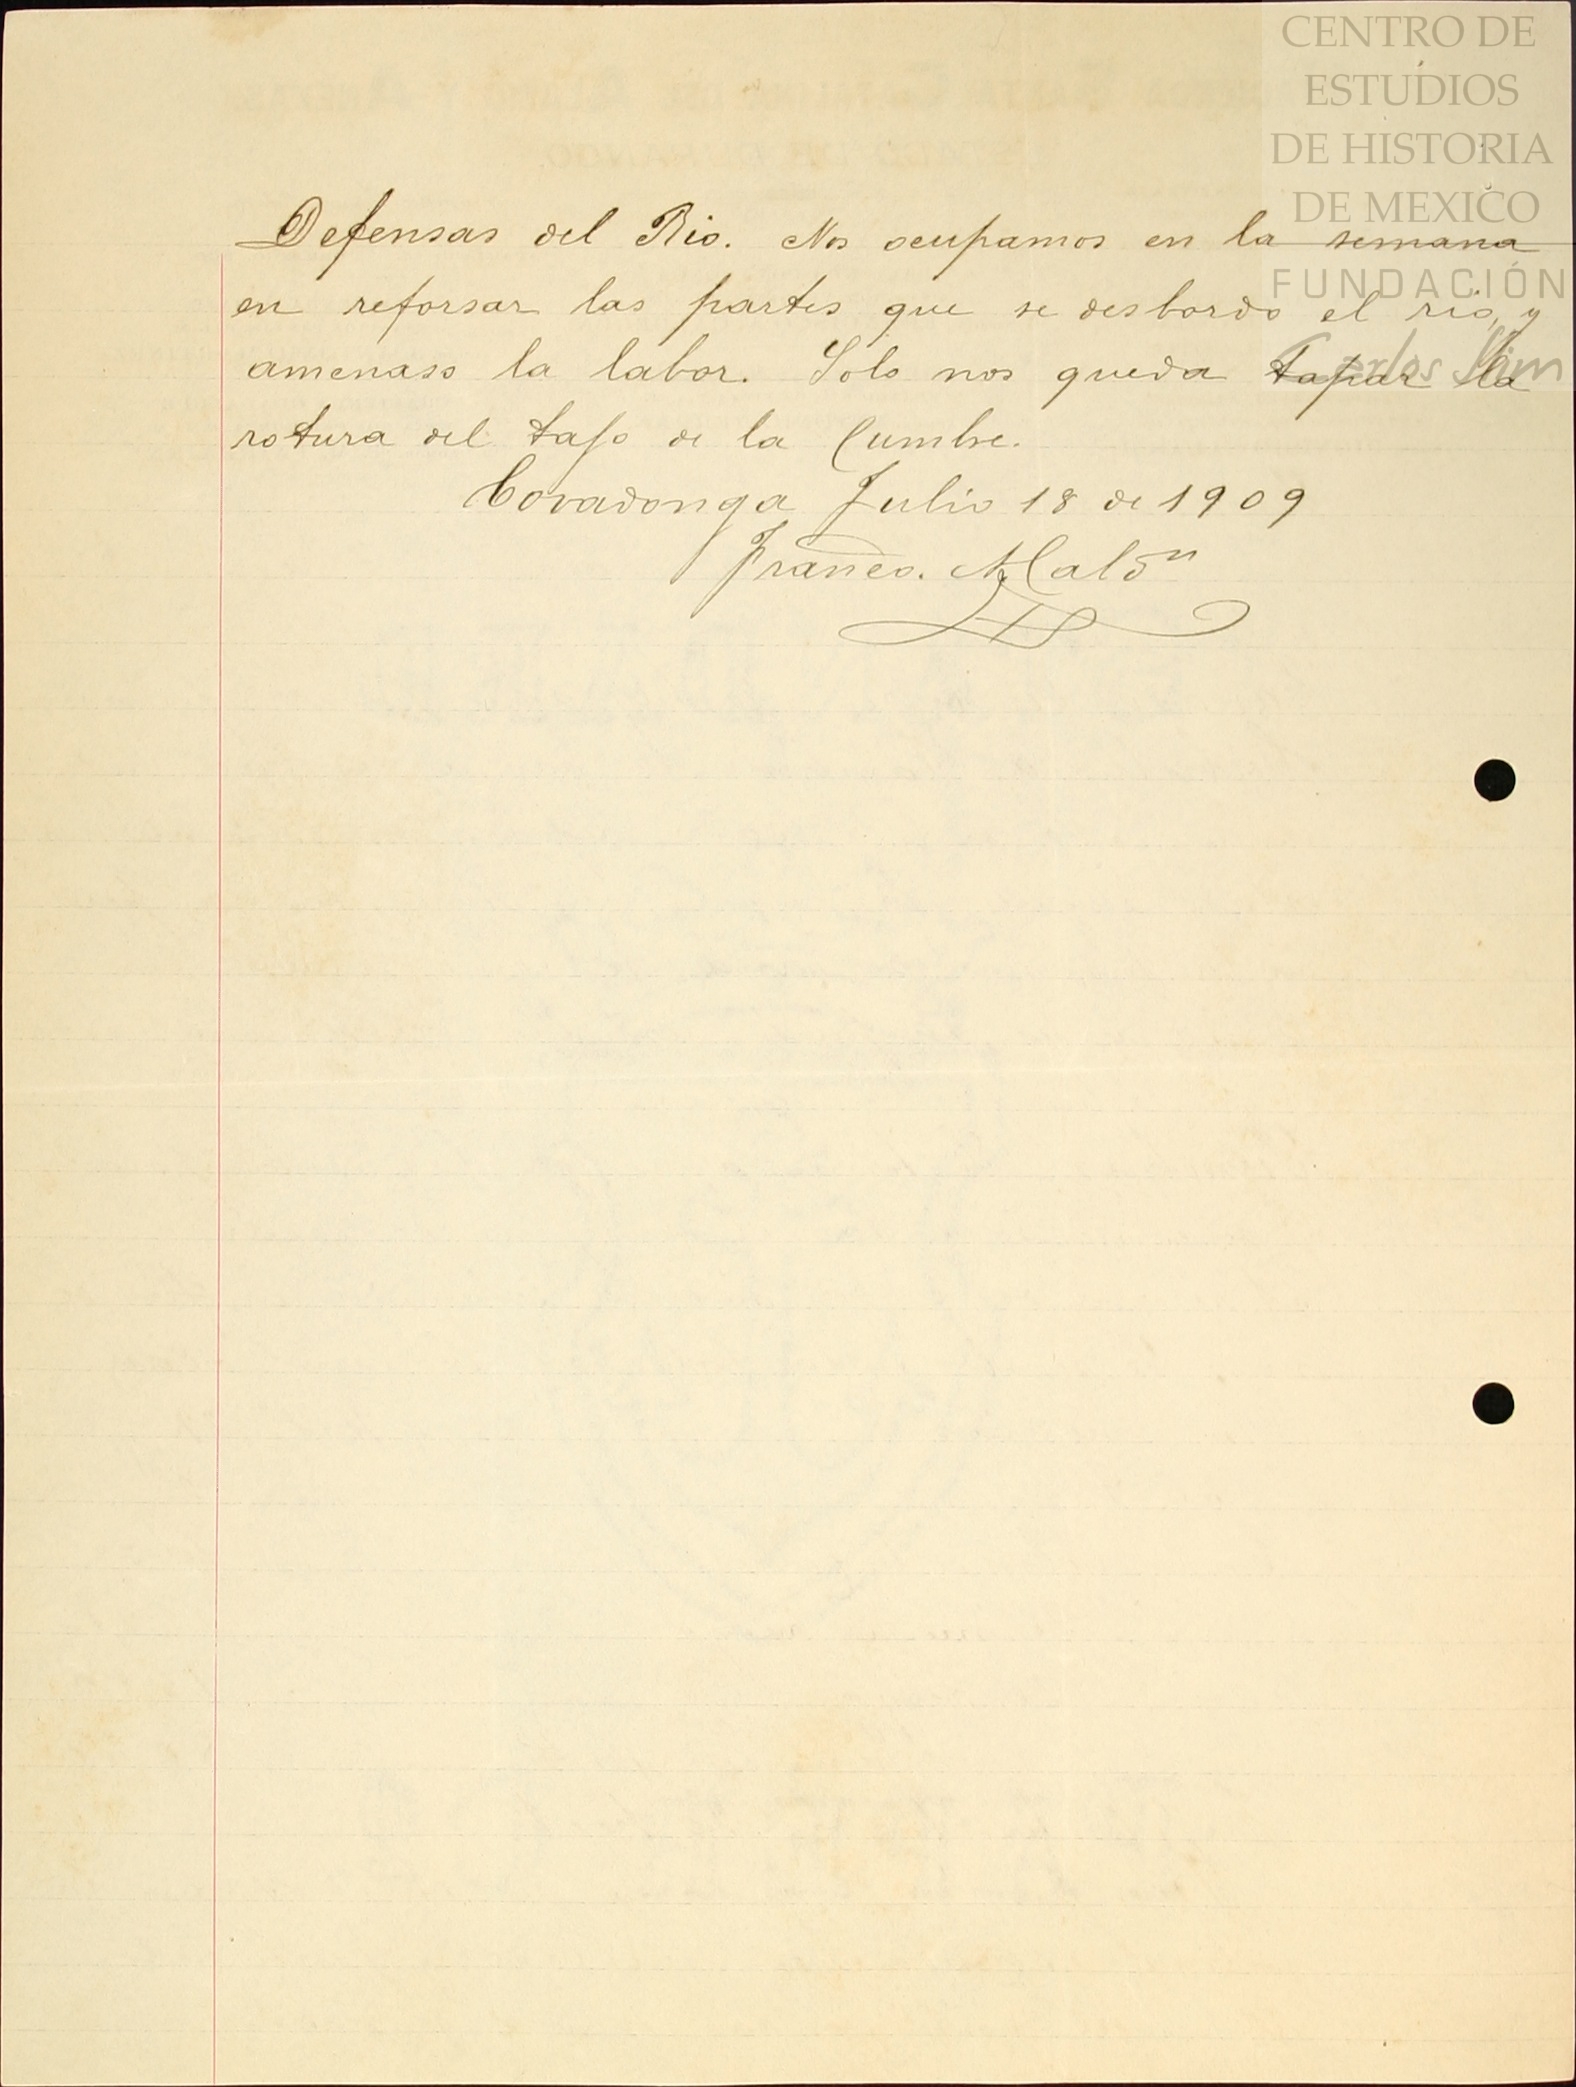 CENTRO DE
ESTUDIOS
DE HISTORIA
DE MEXICO
FUNDACIÓN
Carlos Slim
Defensas del Rio. Nos ocupamos en la semana
en reforsar las partes que se desbordo el rio, y
amenaso la labor. Solo nos queda tapar la
rotura del tajo de la Cumbre.
Covadonga Julio 18 de 1909
Franco.